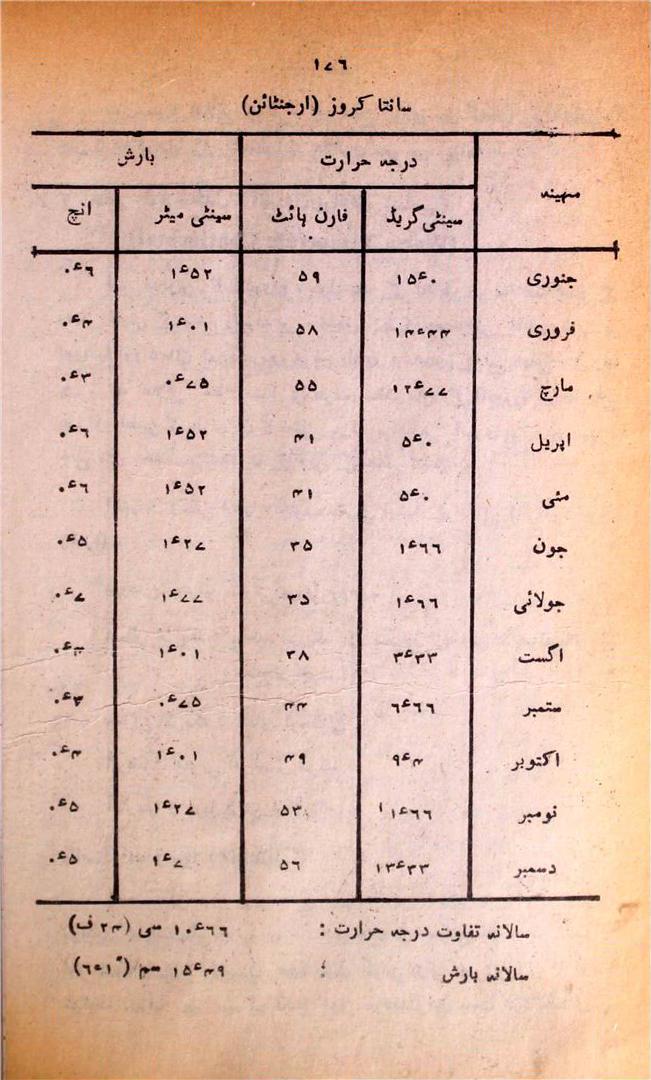 ۱۷۶
سانتا کروز (ارجنٹائن)
مہینہ درجہ حرارت بارش
سینٹی گریڈ فارن ہائٹ سینٹی میٹر انچ
جنوری ۱۵ء۰ ۵۹ ۱ء۵۲ ۰ء۶
فروری ۱۴ء۴۴ ۵۸ ۱ء۰۱ ۰ء۴
مارچ ۱۲ء۷۷ ۵۵ ۰ء۷۵ ۰ء۳
اپریل ۵ء۰ ۴۱ ۱ء۵۲ ۰ء۶
مئی ۵ء۰ ۴۱ ۱ء۵۲ ۰ء۶
جون ۱ء۶۶ ۳۵ ۱ء۲۷ ۰ء۵
جولائی ۱ء۶۶ ۳۵ ۱ء۷۷ ۰ء۷
اگست ۳ء۳۳ ۳۸ ۱ء۰۱ ۰ء۴
ستمبر ۶ء۶۶ ۴۴ ۰ء۷۵ ۰ء۳
اکتوبر ۹ء۴ ۴۹ ۱ء۰۱ ۰ء۴
نومبر ۱۱ء۶۶ ۵۳ ۱ء۲۷ ۰ء۵
دسمبر ۱۳ء۳۳ ۵۶ ۱ء۷ ۰ء۵
سالانہ تفاوت درجہ حرارت : ۱۰ء۶۶ سی (۲۴ ف)
سالانہ بارش : ۱۵ء۴۹ سم (۶ء۱")